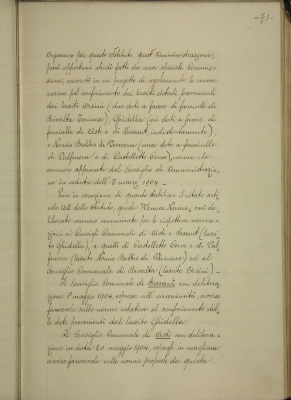 -71-
organico per questo Istituto, quest'Amministrazione,
previ opportuni studi fatti da una speciale Commis-
sione, raccolse in un progetto di regolamento le nuove
norme pel conferimento dei lasciti dotali provenienti
dai lasciti Orsini (due doti a favore di fanciulle di
Rivalta Torinese), Ghidella (sei doti a favore di
fanciulle di Asti o di Passant, indistintamente),
e Nomis Balbis di Vernone (una dote a fanciulla
di Valfenera o di Castelletto Cervo), norme che
vennero approvate dal Consiglio di Amministrazio-
ne in seduta dell' 3 marzo 1904.
Però in omissione di quanto stabilisce il citato arti-
colo 168 dello Statuto, queste Nuove Norme, così de-
liberate vennero comunicate per le rispettive osserva-
zioni ai Consigli Comunali di Asti e Passant (lasci-
to Ghidella), a quelli di Castelletto Cervo e di Val-
fenera (lascito Nomis Balbis di Vernone) ed al
Consiglio Comunale di Rivalta (lascito Orsini).-
Il Consiglio Comunale di Passant con delibera-
zione 1° maggio 1904, espresse all'unanimità, avviso
favorevole sulle norme relative al conferimento del-
le doti provenienti dal lascito Ghidella.
Il Consiglio Comunale di Asti con delibera-
zione in data 20 maggio 1904, espresse in massima
avviso favorevole sulle norme proposte da questa